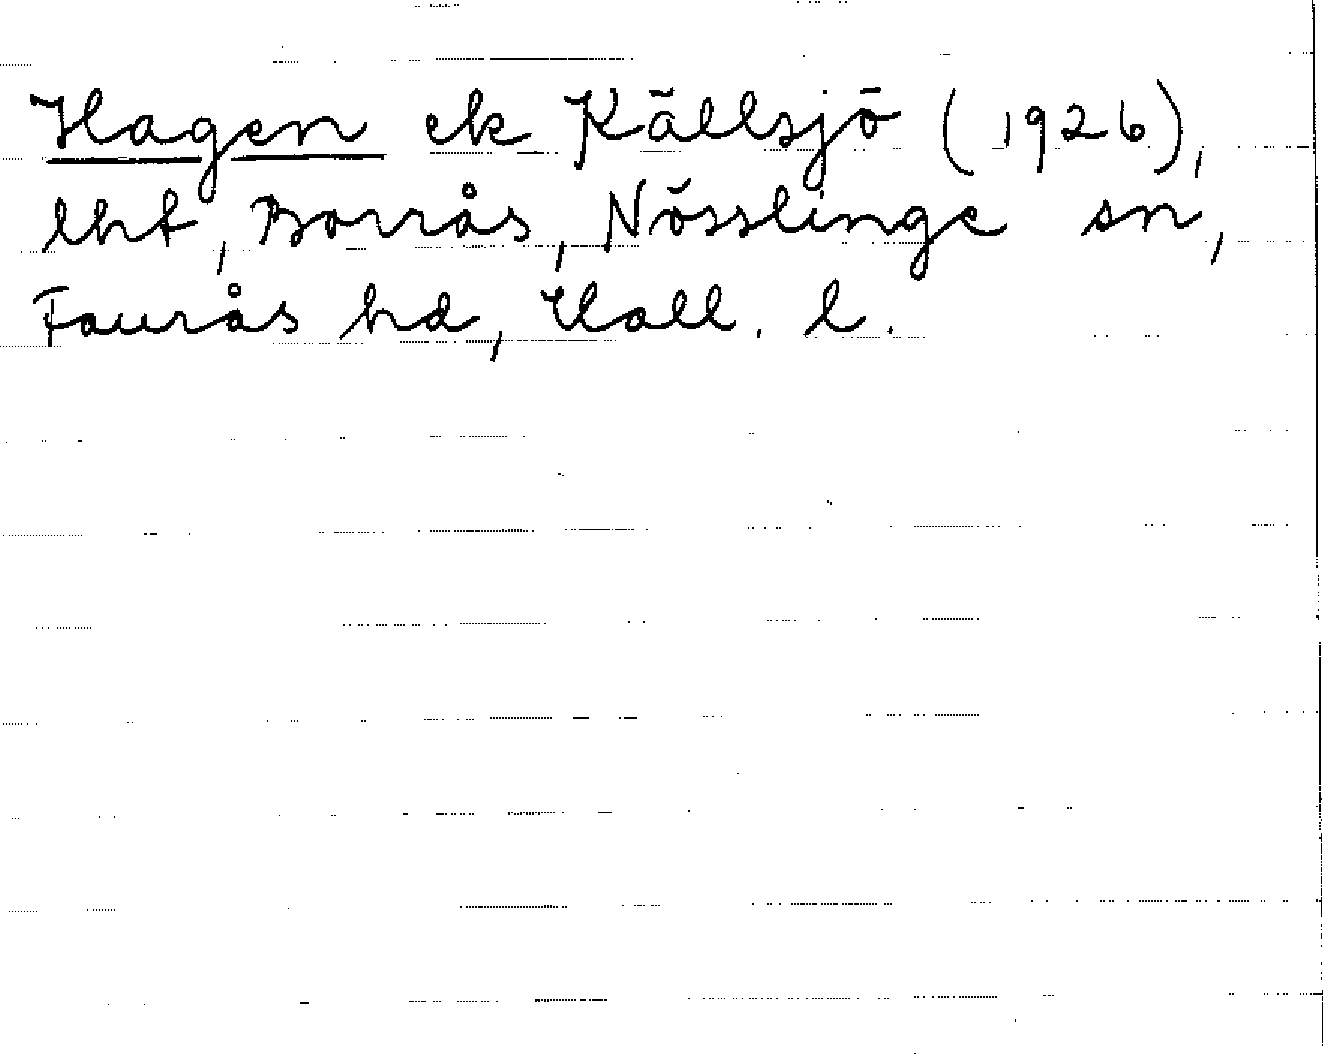 Hagen ek Källsjö (1926),
lht, Borrås, Nösslinge sn,
Faurås hd, Hall. l.